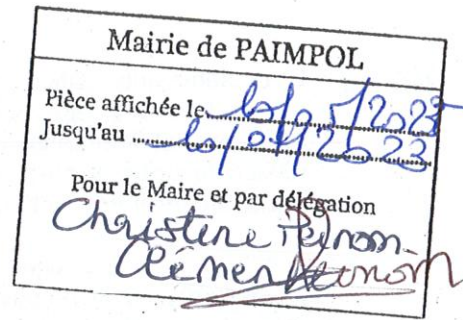 Mairie de PAIMPOL
Pièce affichée le 10/05/2023
Jusqu'au 10/07/2023
Pour le Maire et par délégation
Christine